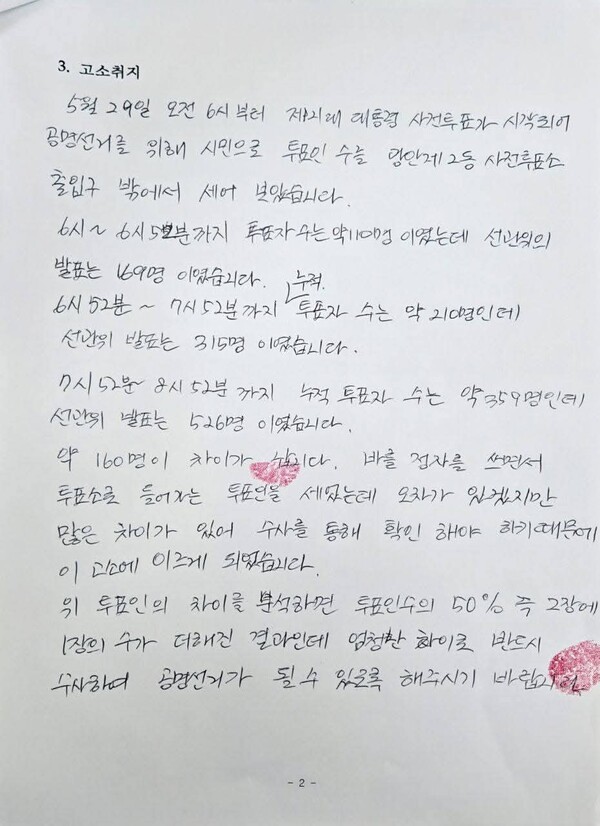 3. 고소취지
5월 29일 오전 6시부터 제21대 대통령 사전투표가 시작되어
공명선거를 위해 시민으로 투표인 수를 양안제2동 사전투표소
출입구 밖에서 세어 보았습니다.
6시~ 6시52분까지 투표자수는 약110명 이였는데 선관위의
발표는 169명 이였습니다.
누적
6시52분~ 7시52분까지 투표자 수는 약 210명인데
선관위 발표는 315명 이였습니다.
7시52분~ 8시52분 까지 누적 투표자 수는 약359명인데
선관위 발표는 526명 이였습니다.
약 160명이 차이가 납니다. 바를 정자를 쓰면서
투표소로 들어가는 투표인을 세었는데 오차가 있겠지만
많은 차이가 있어 수사를 통해 확인 해야 하기때문에
이 고소에 이르게 되었습니다.
위 투표인의 차이를 분석하면 투표인수의 50% 즉 2장에
1장의 수가 더해진 결과인데 엄청난 차이로 반드시
수사하여 공명선거가 될 수 있도록 해주시기 바랍니다.
- 2 -